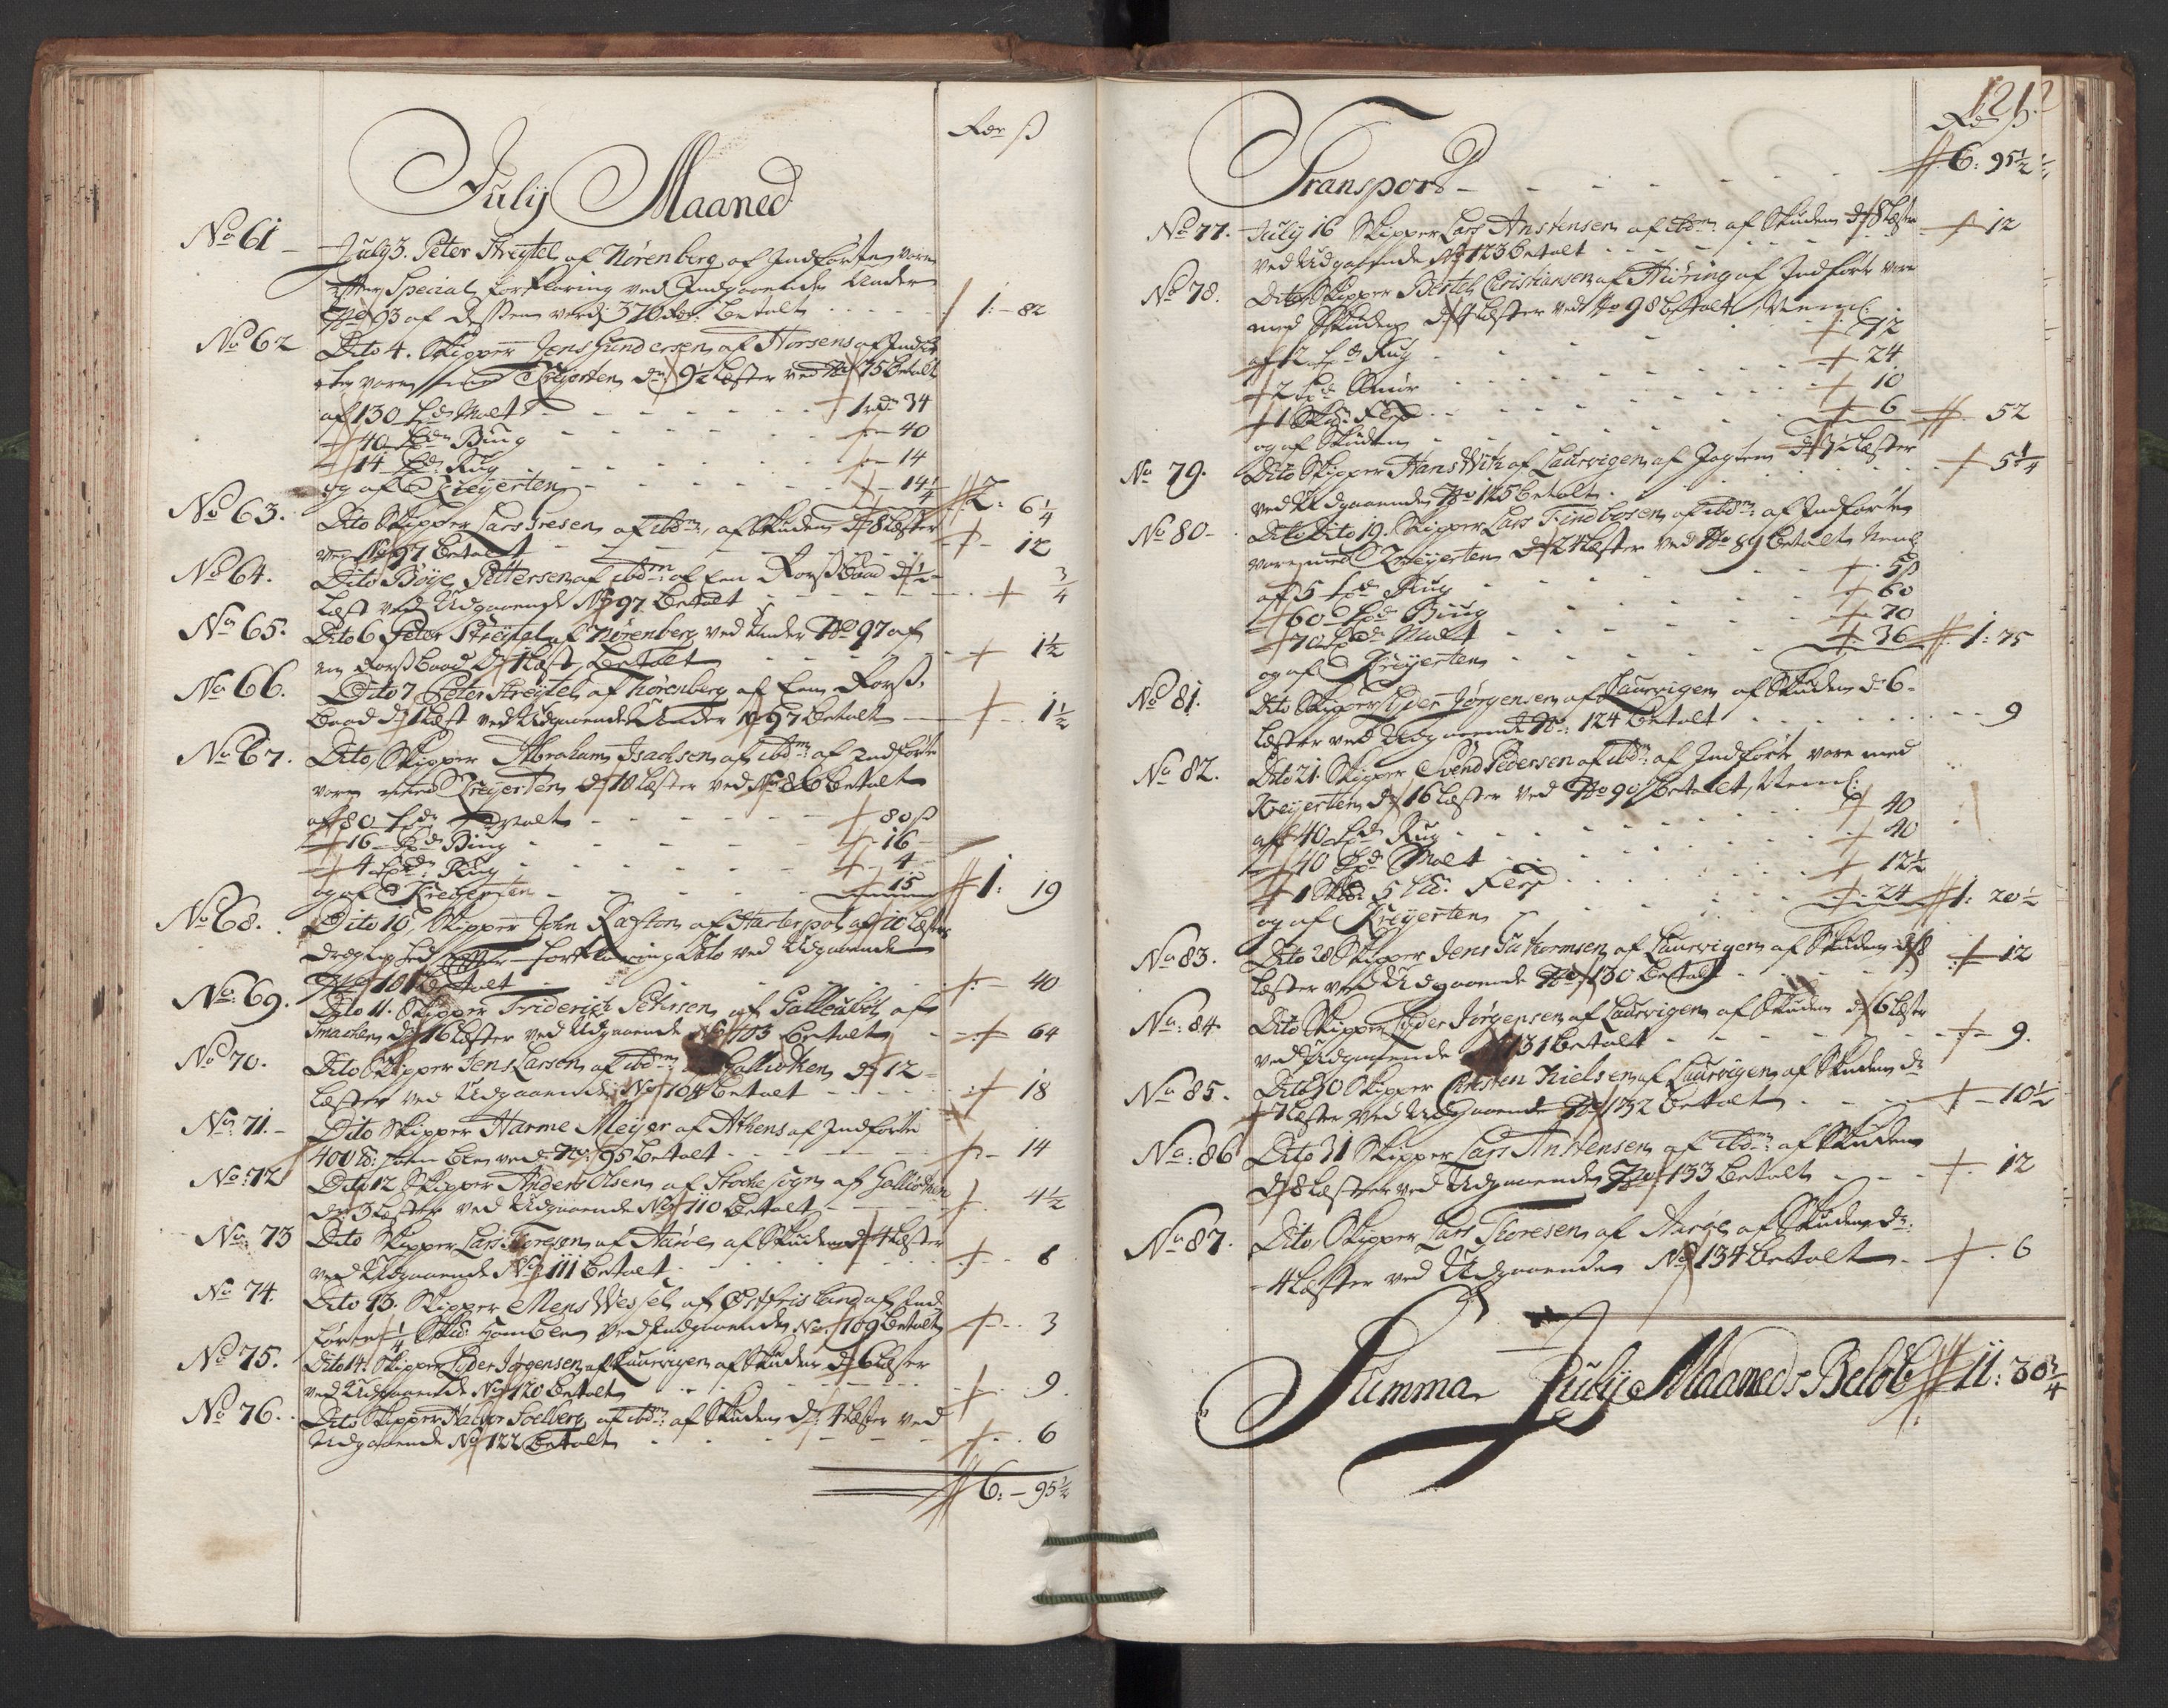 Rdr ß
July Maaned
No 61 July 3. Peter Streytel af Nørenberg af Indførte vare
efter Special forklaring ved Indgaaende Under
No 93 af dessen verdj 370 rdr: betalt 1: - 82
No 62 Dito 4. Skipper Jens Gundersen af Horsens af Indfør
te vare med Kreyerten dr: 9½ Lester ved No 75 betalt
af 130 tdr Malt 1 rdr 34
40 tdr Biug 40
14 tdr Rug 14
og af Kreyerten 14¼ 2: 6¼
No 63. Dito Skipper Lars Iresen af ibdm, af Skuden dr 8 Lester
ved No 97 betalt 12
No 64. Dito Böye Pettersen af ibdm af Een Dorssbaad dr ½
Lest ved Udgaaende No 97 betalt ¾
No 65. Dito 6 Peter Streytel af Nørenberg ved Under No 97 af
en Dorssbaad dr 1 Lest betalt 1½
No 66. Dito 7 Peter Streytel af Nørenberg af Een Dorss
baad dr 1 Lest ved Udgaaende Under No 97 betalt 1½
No 67. Dito, Skipper Abraham Isachsen af ibdm af Indførte
vare med Kreyerten dr 10 Lester ved No 86 betalt
af 80 tdr Malt 80 ß
16 tdr Biug 16
4 tdr: Rug 4
og af Kreyerten 15 1: 19
No 68. Dito 10, Skipper John Raston af Harterpol af 10 Lesters
drægtighed efter forklaring Dito ved Udgaaende
No 101 betalt 40
No: 69. Dito 11. Skipper Friderich Petersen af Galleuböl af
Smachen dr 16 Lester ved Udgaaende No 103 betalt 64
No 70. Dito Skipper Jens Larsen af ibdm Galliothen dr 12
Lester ved Udgaaende No 104 betalt 18
No: 71. Dito Skipper Harme Meijer af Athens af Indførte
400 ℔: ved No: 95 betalt 14
No: 72 Dito 12 Skipper Anders Olsen af Stochesogn af Gallioten
dr 3 Lester ved Udgaaende No 110 betalt 4½
No: 73 Dito Skipper Lars Thoresen af Aaröe af Skuden dr 4 Lester
ved Udgaaende No 111 betalt 6
No 74. Dito 13. Skipper Mens Wessel af Ostfrisland af Ind
førte ¼ Skd: ved Indgaaende No. 109 betalt 3
No 75. Dito 14. Skipper Peder Jørgensen af Laurvigen af Skuden dr 6 Lester
ved Udgaaende No 120 betalt 9
No 76. Dito Skipper Halvor Soelberg af ibdm: af Skuden dr: 4 Lester ved
Udgaaende No 122 betalt 6
6: - 95½
121
Rdr ß
Transport 6: 95½
No 77. July 16 Skipper Lars Anstensen af ibdm af Skuden dr 8 Lester
ved Udgaaende No 123 betalt 12
No 78. Dito Skipper Bertel Christiansen af Hiöring af Indførte vare
med Skuden dr 4 Lester ved No 98 betalt, Neml:
af 12 tdr Rug 12
2 tdr Smør 24
1 Skd: Flesk 10
og af Skuden 6 52
No 79. Dito Skipper Hans With af Laurvigen af Jagten dr 3½ Lester
ved Udgaaende No 125 betalt 5¼
No 80. Dito Dito 19. Skipper Lars Findbosen af ibdm: af Indførte
vare med Kreyerten dr 24 Lester ved No 89 betalt Neml:
af 5 tdr Rug 5 ß
60 tdr Biug 60
70 tdr Malt 70
og af Kreyerten 36 1: 75
No 81. Dito Skipper Peder Jørgensen af Laurvigen af Skuden dr 6
Lester ved Udgaaende No: 124 betalt 9
No 82. Dito 21. Skipper Svend Pedersen af ibdm: af Indførte vare med
Kreyerten dr 16 Lester ved No 90 betalt, Neml:
af 40 tdr Rug 40
40 tdr Malt 40
1 Skd 5 ℔: Flesk 12½
og af Kreyerten 24 1: 20½
No 83. Dito 28 Skipper Jens Guthormsen af Laurvigen af Skuden dr 8
Lester ved Udgaaende No 130 betalt 12
No: 84 Dito Skipper Peder Jørgensen af Laurvigen af Skuden dr 6 Lester
ved Udgaaende 131 betalt 9.
No 85. Dito 30 Skipper Christen Nielsen af Laurvigen af Skuden dr
7 Lester ved Udgaaende No 132 betalt 10½
No: 86 Dito 31 Skipper Lars Anstensen af ibdm: af Skuden
dr 8 Lester ved Udgaaende No 133 betalt 12
No 87. Dito, Skipper Lars Thoresen af Aaröe af Skuden dr
4 Lester ved Udgaaende No 134 betalt 6
Summa July Maaneds Beløb 11: 30¾